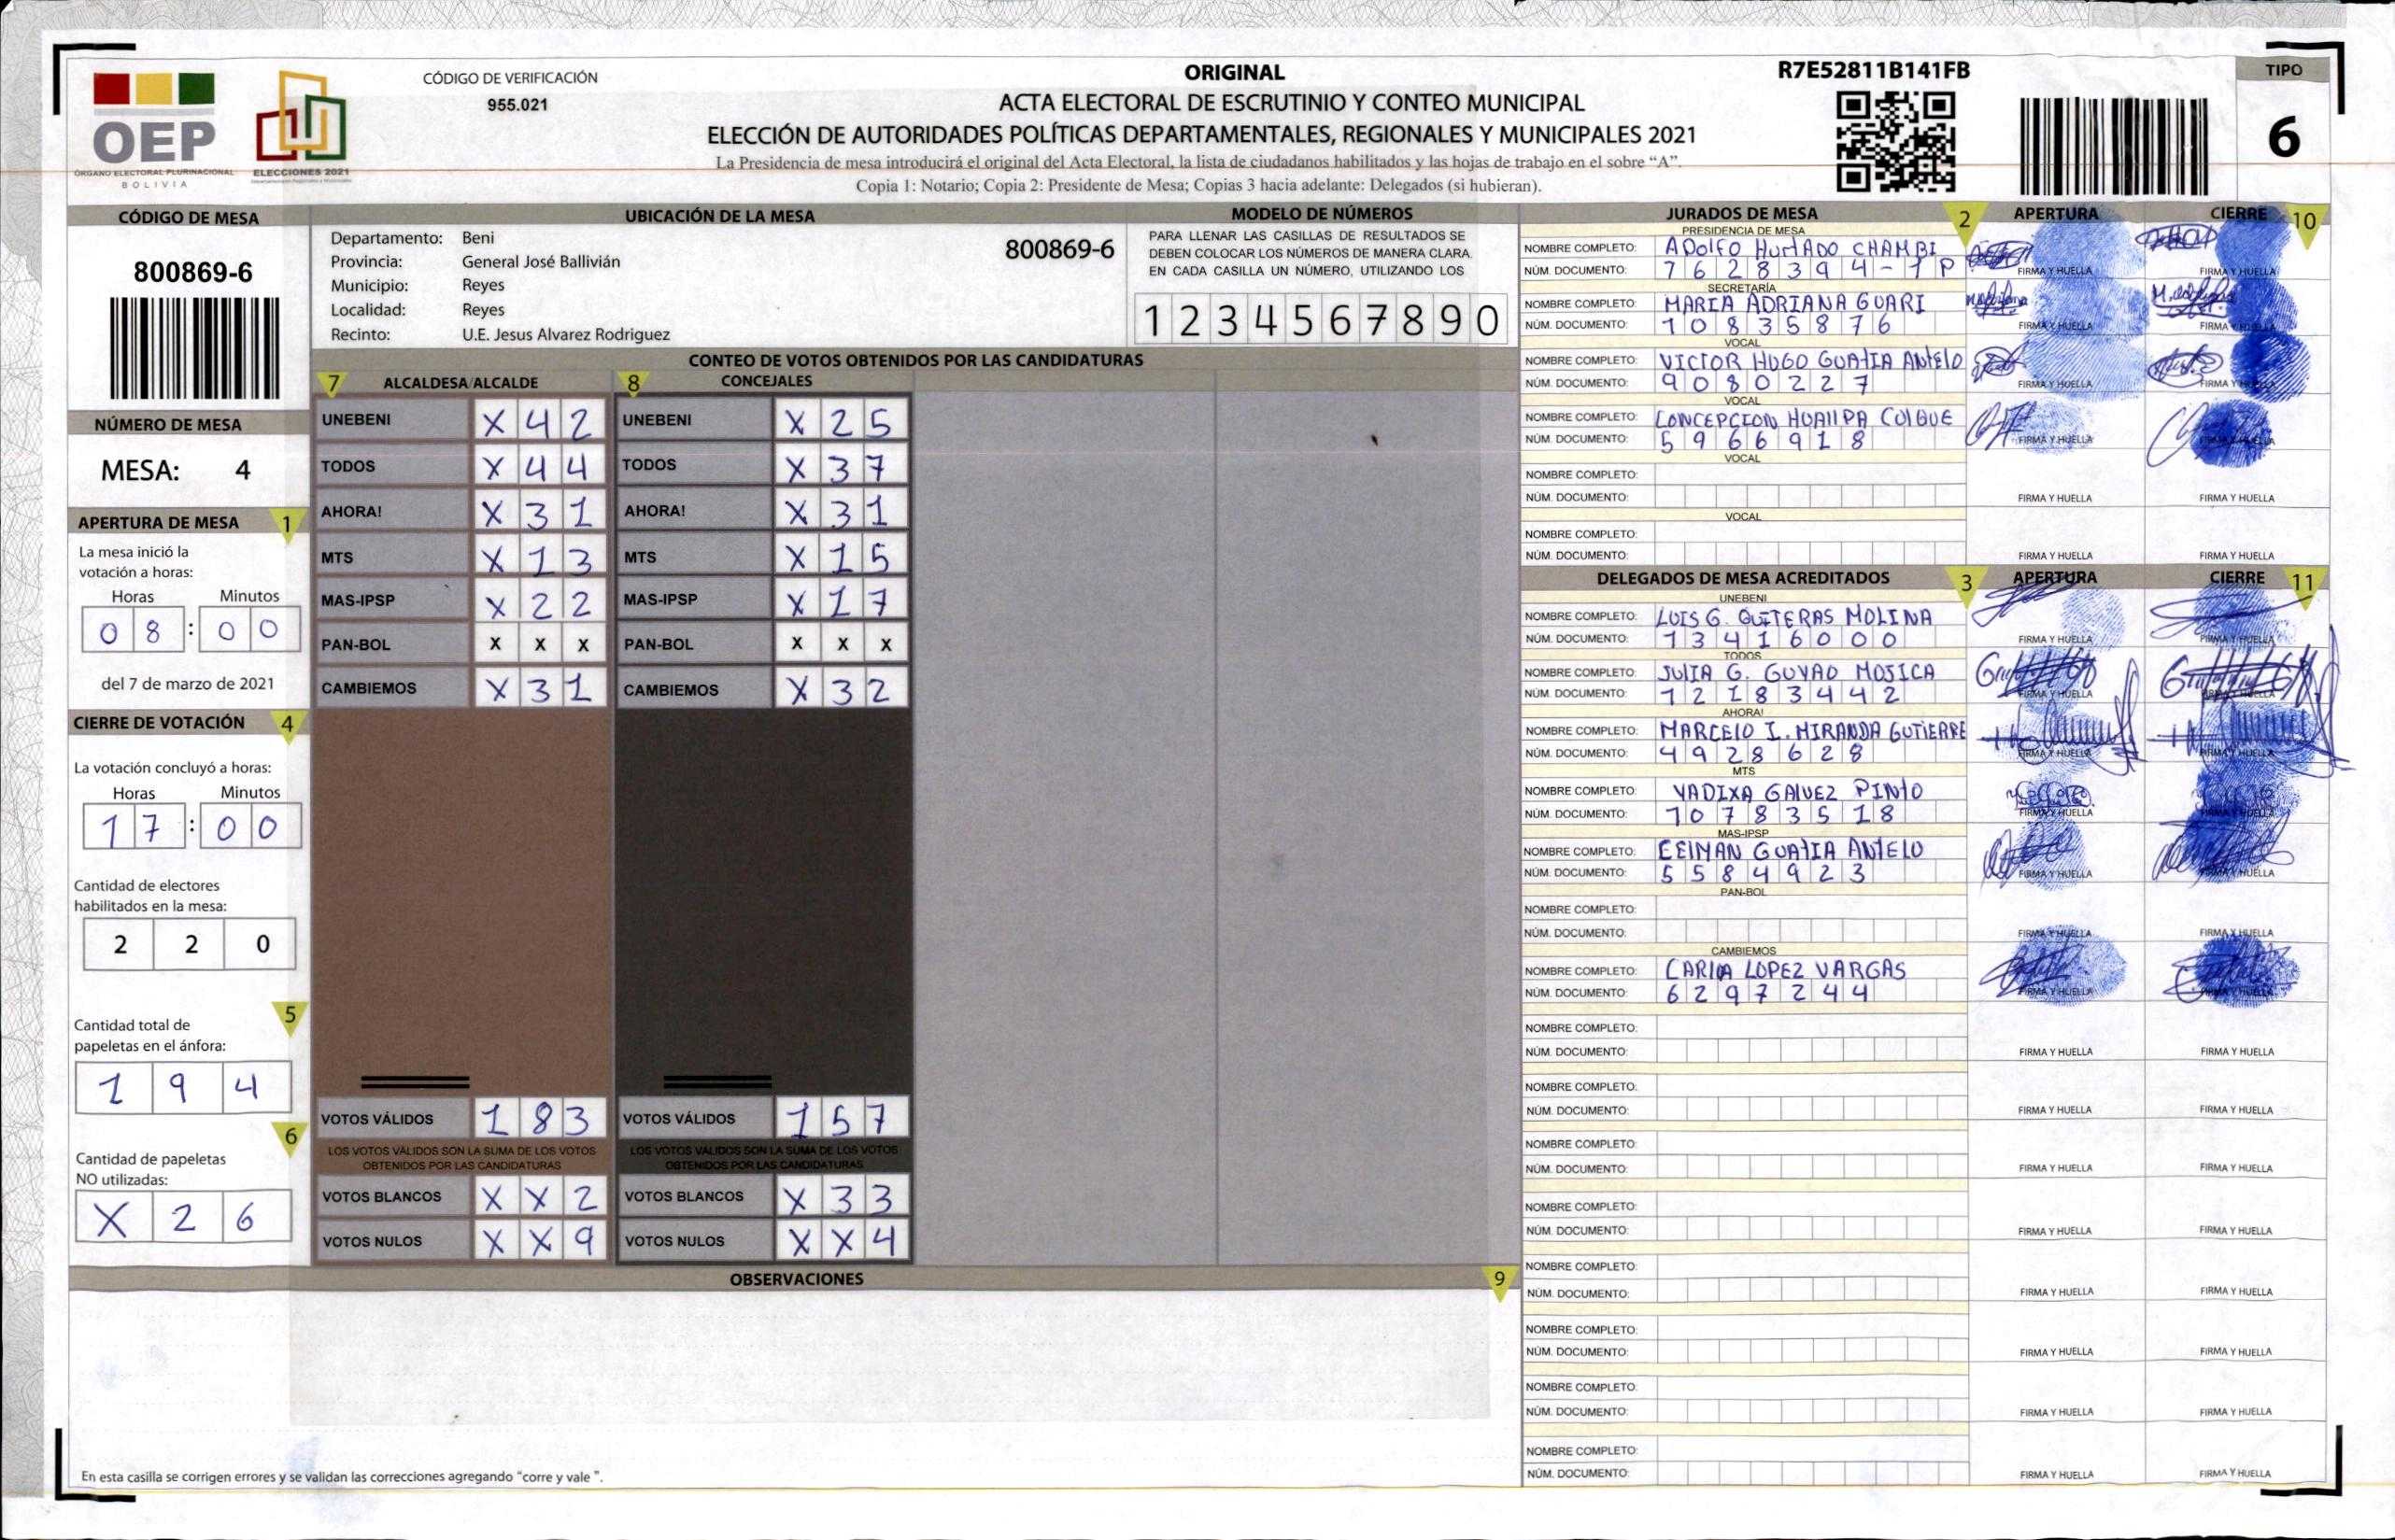 OEP
ÓRGANO ELECTORAL PLURINACIONAL
BOLIVIA
ELECCIONES 2021
CÓDIGO DE VERIFICACIÓN
955.021
ORIGINAL
ACTA ELECTORAL DE ESCRUTINIO Y CONTEO MUNICIPAL
ELECCIÓN DE AUTORIDADES POLÍTICAS DEPARTAMENTALES, REGIONALES Y MUNICIPALES 2021
La Presidencia de mesa introducirá el original del Acta Electoral, la lista de ciudadanos habilitados y las hojas de trabajo en el sobre “A”.
Copia 1: Notario; Copia 2: Presidente de Mesa; Copias 3 hacia adelante: Delegados (si hubieran).
R7E52811B141FB
TIPO
6
CÓDIGO DE MESA
800869-6
NÚMERO DE MESA
MESA: 4
APERTURA DE MESA 1
La mesa inició la
votación a horas:
Horas Minutos
0 8 : 0 0
del 7 de marzo de 2021
CIERRE DE VOTACIÓN 4
La votación concluyó a horas:
Horas Minutos
1 7 : 0 0
Cantidad de electores
habilitados en la mesa:
2 2 0
5
Cantidad total de
papeletas en el ánfora:
1 9 4
6
Cantidad de papeletas
NO utilizadas:
X 2 6
UBICACIÓN DE LA MESA
Departamento: Beni
Provincia: General José Ballivián
Municipio: Reyes
Localidad: Reyes
Recinto: U.E. Jesus Alvarez Rodriguez
800869-6
MODELO DE NÚMEROS
PARA LLENAR LAS CASILLAS DE RESULTADOS SE
DEBEN COLOCAR LOS NÚMEROS DE MANERA CLARA.
EN CADA CASILLA UN NÚMERO, UTILIZANDO LOS
1 2 3 4 5 6 7 8 9 0
CONTEO DE VOTOS OBTENIDOS POR LAS CANDIDATURAS
7 ALCALDESA/ALCALDE 8 CONCEJALES
UNEBENI X 4 2 UNEBENI X 2 5
TODOS X 4 4 TODOS X 3 7
AHORA! X 3 1 AHORA! X 3 1
MTS X 1 3 MTS X 1 5
MAS-IPSP X 2 2 MAS-IPSP X 1 7
PAN-BOL X X X PAN-BOL X X X
CAMBIEMOS X 3 1 CAMBIEMOS X 3 2
VOTOS VÁLIDOS 1 8 3 VOTOS VÁLIDOS 1 5 7
LOS VOTOS VÁLIDOS SON LA SUMA DE LOS VOTOS LOS VOTOS VÁLIDOS SON LA SUMA DE LOS VOTOS
OBTENIDOS POR LAS CANDIDATURAS OBTENIDOS POR LAS CANDIDATURAS
VOTOS BLANCOS X X 2 VOTOS BLANCOS X 3 3
VOTOS NULOS X X 9 VOTOS NULOS X X 4
OBSERVACIONES 9
En esta casilla se corrigen errores y se validan las correcciones agregando “corre y vale ”.
JURADOS DE MESA 2 APERTURA CIERRE 10
PRESIDENCIA DE MESA
NOMBRE COMPLETO: ADOLFO HURTADO CHAMBI
NÚM. DOCUMENTO: 7 6 2 8 3 9 4 - 1 P FIRMA Y HUELLA FIRMA Y HUELLA
SECRETARÍA
NOMBRE COMPLETO: MARIA ADRIANA GUARI
NÚM. DOCUMENTO: 1 0 8 3 5 8 7 6 FIRMA Y HUELLA FIRMA
VOCAL
NOMBRE COMPLETO: VICTOR HUGO GUATIA ANTELO
NÚM. DOCUMENTO: 9 0 8 0 2 2 7 FIRMA Y HUELLA FIRMA Y
VOCAL
NOMBRE COMPLETO: CONCEPCION HUALLPA COLQUE
NÚM. DOCUMENTO: 5 9 6 6 9 1 8 FIRMA Y HUELLA
VOCAL
NOMBRE COMPLETO:
NÚM. DOCUMENTO: FIRMA Y HUELLA FIRMA Y HUELLA
VOCAL
NOMBRE COMPLETO:
NÚM. DOCUMENTO: FIRMA Y HUELLA FIRMA Y HUELLA
DELEGADOS DE MESA ACREDITADOS 3 APERTURA CIERRE 11
UNEBENI
NOMBRE COMPLETO: LUIS G. QUITERAS MOLINA
NÚM. DOCUMENTO: 1 3 4 1 6 0 0 0 FIRMA Y HUELLA FIRMA Y HUELLA
TODOS
NOMBRE COMPLETO: JULIA G. GUYAO MOJICA
NÚM. DOCUMENTO: 1 2 1 8 3 4 4 2 FIRMA Y HUELLA
AHORA!
NOMBRE COMPLETO: MARCELO I. MIRANDA GUTIERRE
NÚM. DOCUMENTO: 4 9 2 8 6 2 8 FIRMA Y HUELLA FIRMA Y HUELLA
MTS
NOMBRE COMPLETO: YADIXA GALVEZ PINTO
NÚM. DOCUMENTO: 1 0 7 8 3 5 1 8 FIRMA Y HUELLA
MAS-IPSP
NOMBRE COMPLETO: EELMAN GUATIA ANTELO
NÚM. DOCUMENTO: 5 5 8 4 9 2 3 FIRMA Y HUELLA HUELLA
PAN-BOL
NOMBRE COMPLETO:
NÚM. DOCUMENTO: FIRMA Y HUELLA FIRMA Y HUELLA
CAMBIEMOS
NOMBRE COMPLETO: CARLA LOPEZ VARGAS
NÚM. DOCUMENTO: 6 2 9 7 2 4 4 FIRMA Y HUELLA FIRMA Y HUELLA
NOMBRE COMPLETO:
NÚM. DOCUMENTO: FIRMA Y HUELLA FIRMA Y HUELLA
NOMBRE COMPLETO:
NÚM. DOCUMENTO: FIRMA Y HUELLA FIRMA Y HUELLA
NOMBRE COMPLETO:
NÚM. DOCUMENTO: FIRMA Y HUELLA FIRMA Y HUELLA
NOMBRE COMPLETO:
NÚM. DOCUMENTO: FIRMA Y HUELLA FIRMA Y HUELLA
NOMBRE COMPLETO:
NÚM. DOCUMENTO: FIRMA Y HUELLA FIRMA Y HUELLA
NOMBRE COMPLETO:
NÚM. DOCUMENTO: FIRMA Y HUELLA FIRMA Y HUELLA
NOMBRE COMPLETO:
NÚM. DOCUMENTO: FIRMA Y HUELLA FIRMA Y HUELLA
NOMBRE COMPLETO:
NÚM. DOCUMENTO: FIRMA Y HUELLA FIRMA Y HUELLA